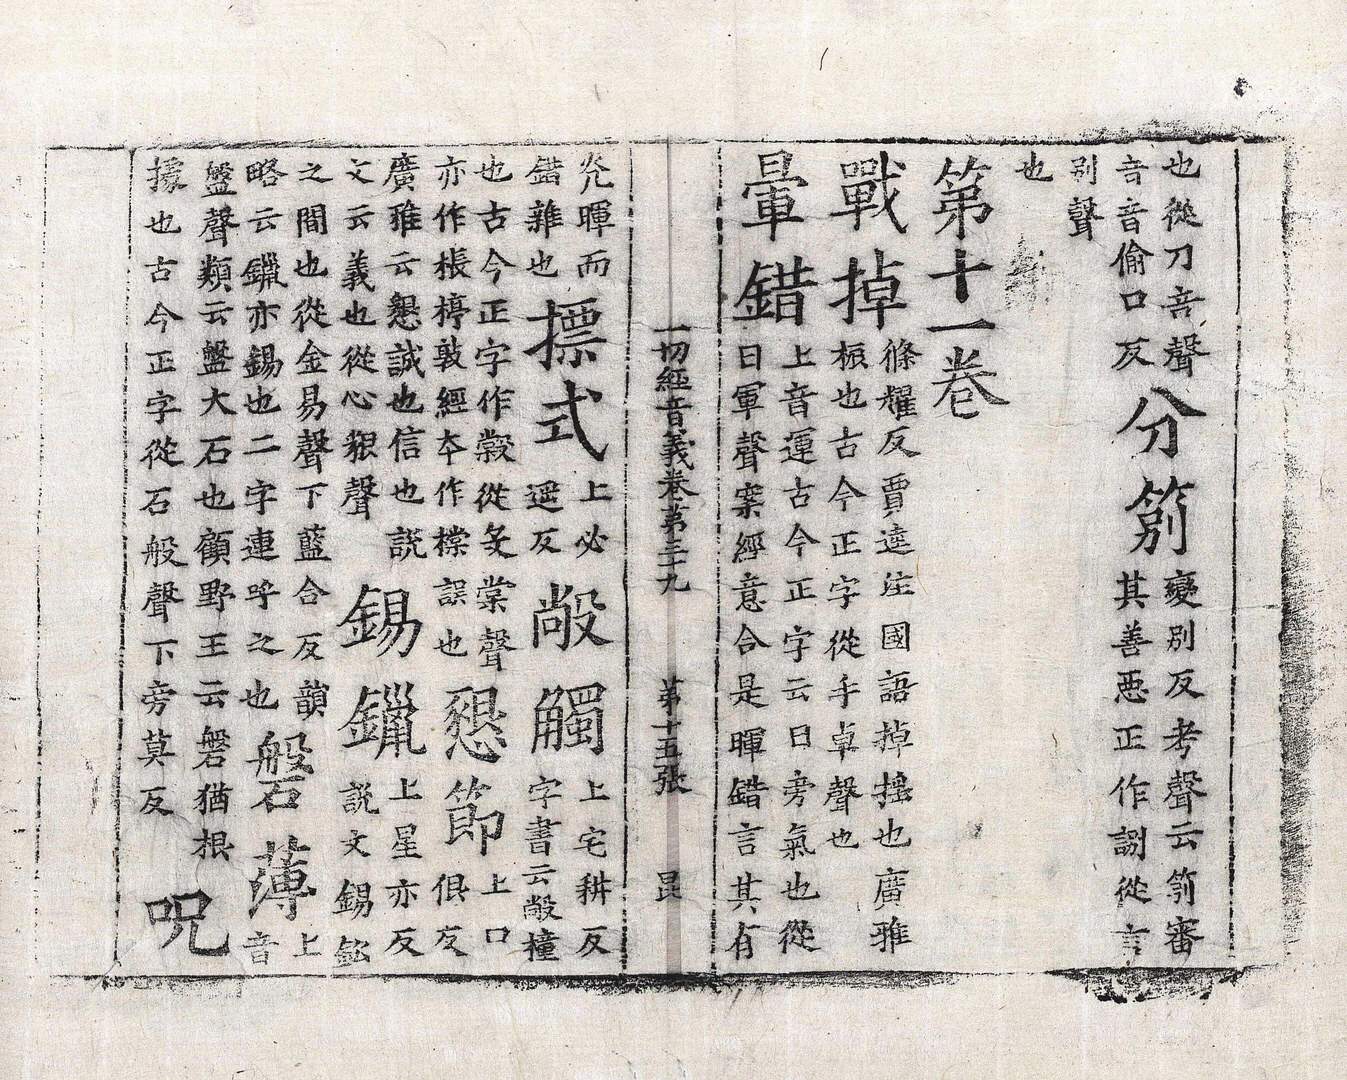 也從刀咅聲
音音偷口反
分箣
變別反考聲云箣審
其善惡正作䛟從言
别聲
也
第十一卷
戰掉
篠耀反賈逵注國語掉搖也廣雅
振也古今正字從手卓聲也
暈錯
上音運古今正字云日旁氣也從
日軍聲案經意合是暉錯言其有
一切經音義卷第三十九 第十五張 昆
光暉而
錯雜也
標式
上必
遥反
敞觸
上宅耕反
字書云敞橦
也古今正字作從攴棠聲
亦作棖揨敦經本作樘誤也
懇節
上口
佷反
廣雅云懇誠也信也説
文云義也從心豤聲
錫鑞
上星亦反
説文錫鈆
之間也從金易聲下藍合反韻
略云鑞亦錫也二字連呼之也
磐薄
上
音
盤聲類云盤大石也顧野王云磐猶根
據也古今正字從石般聲下旁莫反
呪